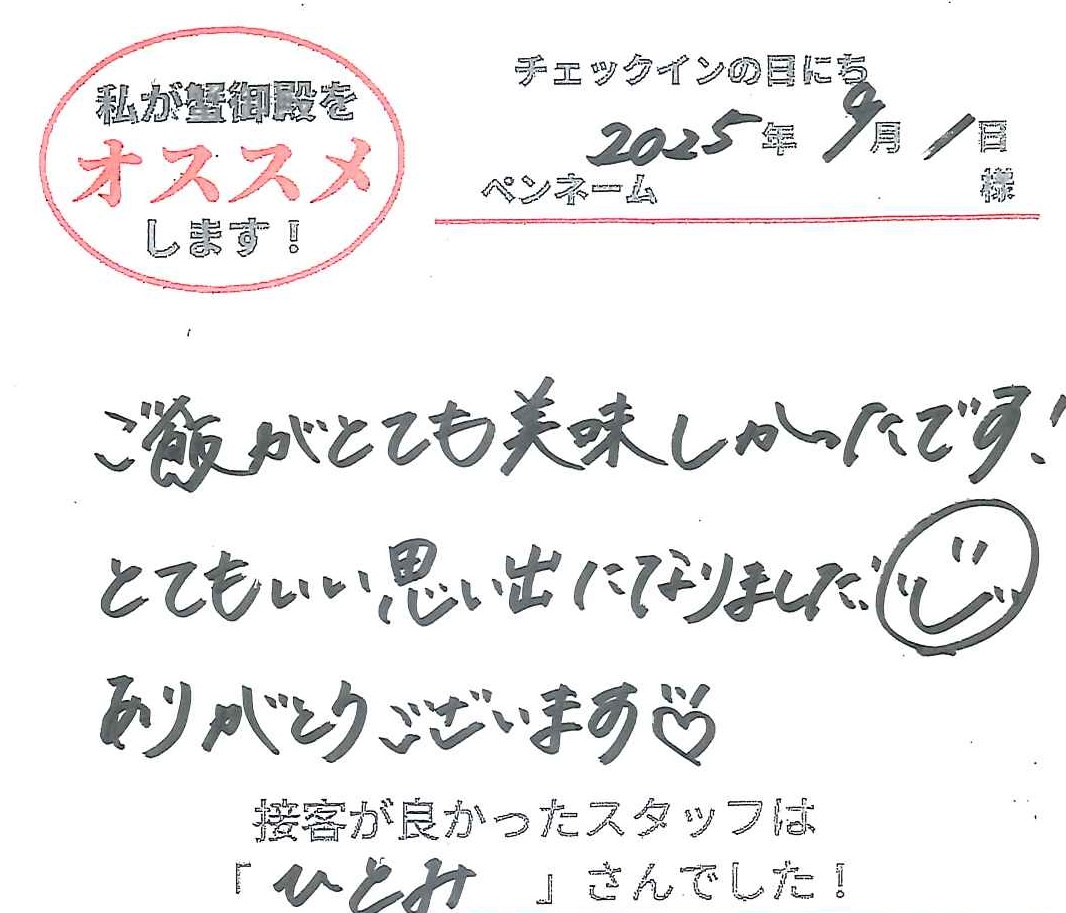 私が蟹御殿を
オススメ
します!
チェックインの日にち
2025年9月1日
ペンネーム 様
ご飯がとても美味しかったです!
とてもいい思い出になりました
ありがとうございます♡
接客が良かったスタッフは
「ひとみ」さんでした!